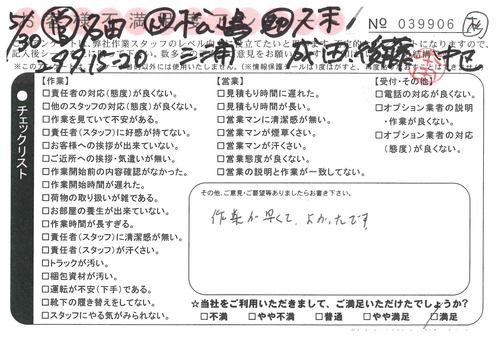 No 039906
5/30
チェックリスト
【作業】
□責任者の対応(態度)が良くない。
□他のスタッフの対応(態度)が良くない。
□作業を見ていて不安がある。
□責任者(スタッフ)に好感が持てない。
□お客様への挨拶が出来ていない。
□ご近所への挨拶・気遣いが無い。
□作業開始前の内容確認がなかった。
□作業開始時間が遅れた。
□荷物の取り扱いが雑である。
□お部屋の養生が出来ていない。
□作業時間が長すぎる。
□責任者(スタッフ)に清潔感が無い。
□責任者(スタッフ)が汗くさい。
□トラックが汚い。
□梱包資材が汚い。
□運転が不安(下手)である。
□靴下の履き替えをしてない。
□スタッフにやる気がみられない。
【営業】
□見積もり時間に遅れた。
□見積もり時間が長い。
□営業マンに清潔感が無い。
□営業マンが煙草くさい。
□営業マンが汗くさい。
□営業態度が良くない。
□営業の説明と作業が一致してない。
【受付・その他】
□電話の対応が良くない。
□オプション業者の説明
・作業が良くない。
□オプション業者の対応
(態度)が良くない。
その他、ご意見・ご要望等ありましたらお書き下さい。
作業が早くて、よかったです
☆当社をご利用いただきまして、ご満足いただけたでしょうか？
□不満 □やや不満 □普通 □やや満足 □満足